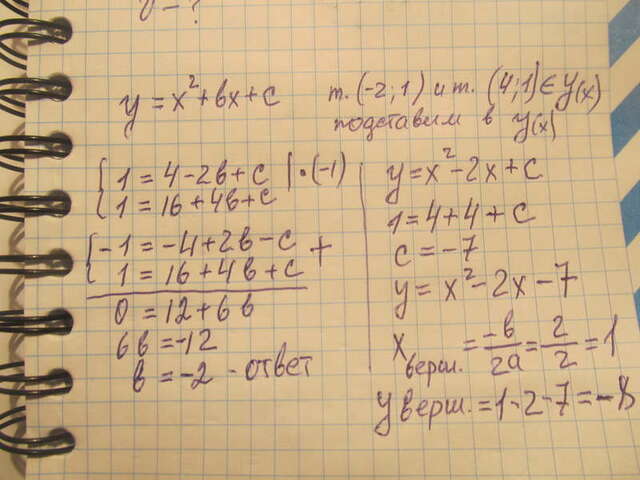 y = x² + bx + c
т. (-2; 1) и т. (4; 1) ∈ y(x)
подставим в y(x)
{ 1 = 4 - 2b + c | · (-1)
{ 1 = 16 + 4b + c
{ -1 = -4 + 2b - c
{ 1 = 16 + 4b + c +
0 = 12 + 6b
6b = -12
b = -2 - ответ
y = x² - 2x + c
1 = 4 + 4 + c
c = -7
y = x² - 2x - 7
x верш. = -b/2a = 2/2 = 1
y верш. = 1 - 2 - 7 = -8